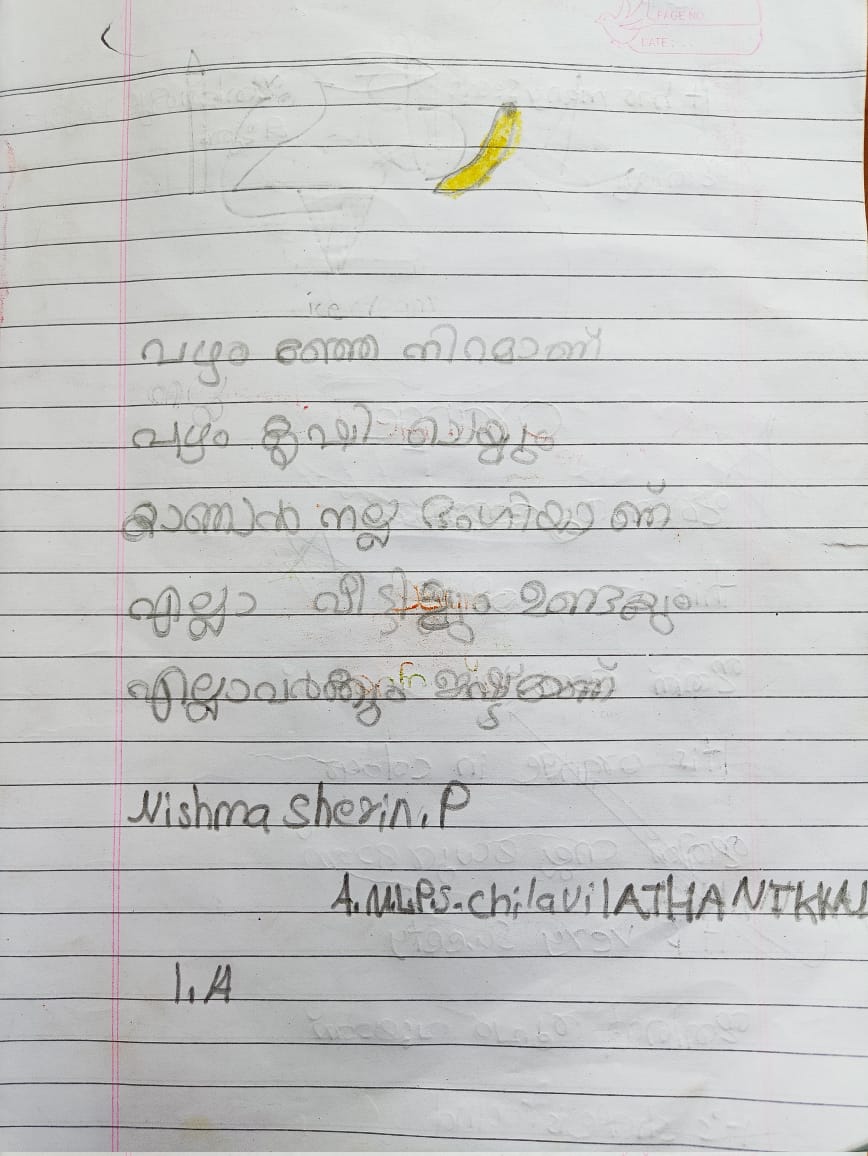 PAGE NO.
DATE:
പഴം മഞ്ഞ നിറമാണ്
പഴം കൃഷി ചെയ്യും
കാണാൻ നല്ല ഭംഗിയാണ്
എല്ലാ വീട്ടിലും ഉണ്ടയും
എല്ലാവർക്കും ഇഷ്ട്ടമാണ്
Nishma Sherin.P
A.M.L.P.S. chilavil ATHANIKKAL
1.A